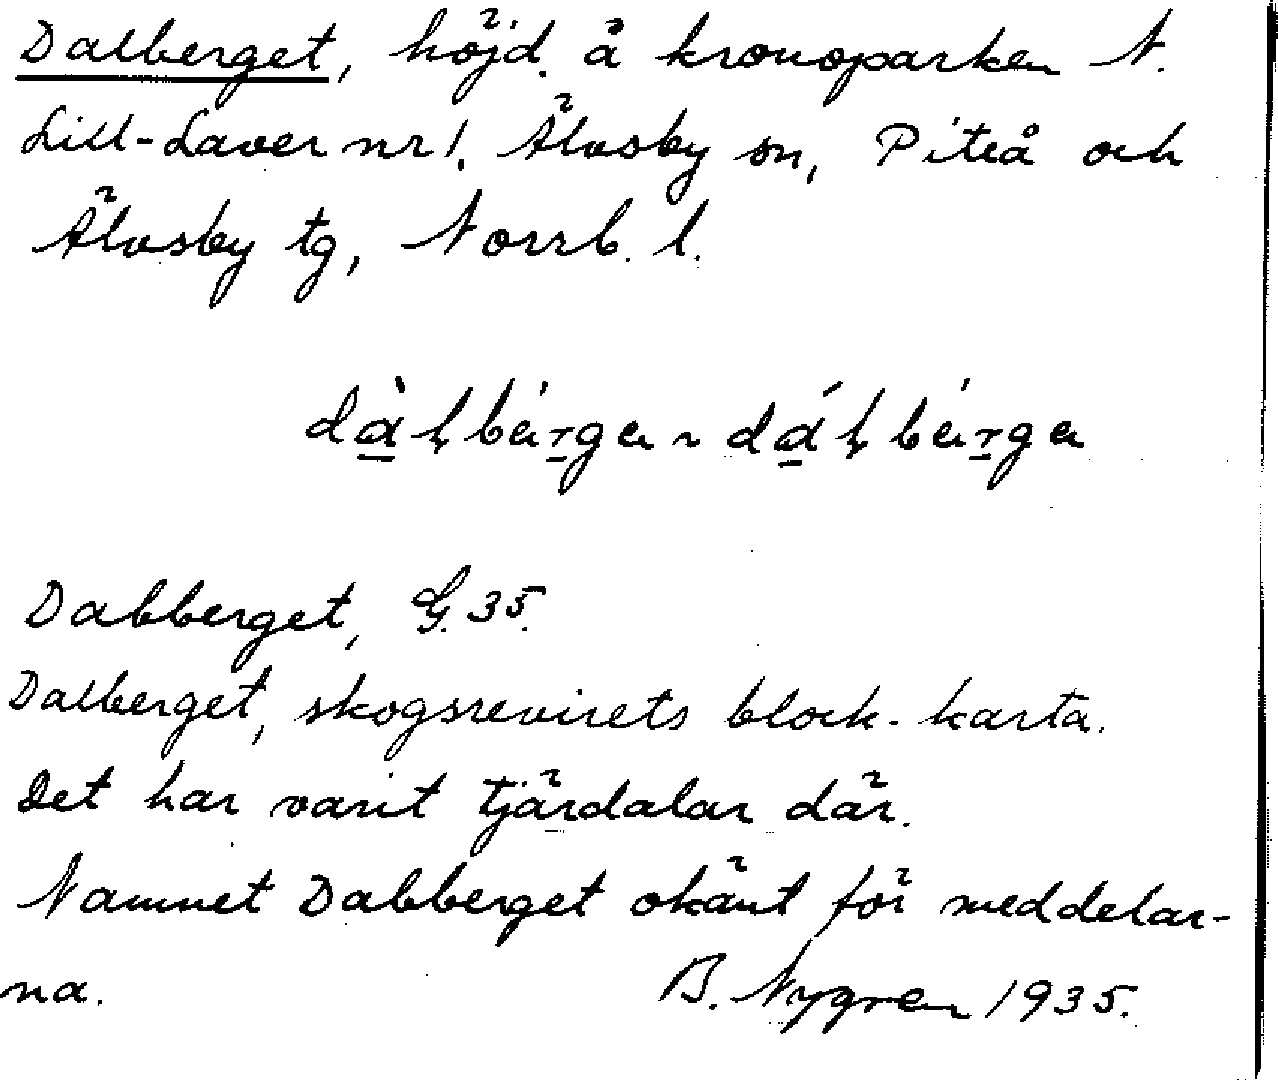 Dalberget, höjd å kronoparken N.
Lill-Laver nr 1, Älvsby sn, Piteå och
Älvsby tg, Norrb. l.
Dabberget, G. 35.
Dalberget, skogsrevirets block-karta.
Det har varit tjärdalar där.
Namnet Dabberget okänt för meddelar-
na. B. Nygren 1935.